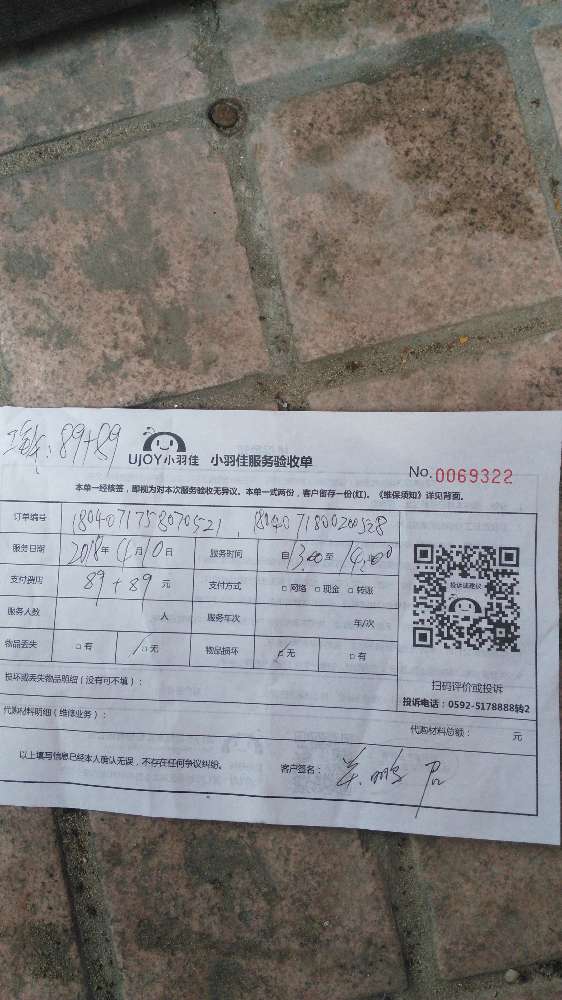 ：89+89
UJOY小羽佳 小羽佳服务验收单
No.0069322
本单一经核签，即视为对本次服务验收无异议。本单一式两份，客户留存一份(红)。《维保须知》详见背面。
订单编号 18040717758070521 , 1804071800200528
服务日期 2018年4月10日 服务时间 自13:00至14:00
支付费用 89+89 元 支付方式 □网络 □现金 □转账
服务人数 人 服务车次 年/次
物品丢失 □有 □无 物品损坏 □无 □有
投诉或建议
扫码评价或投诉
投诉电话：0592-5178888转2
损坏或丢失物品明细（没有可不填）：
代购材料明细（维修业务）：
代购材料总额： 元
以上填写信息已经本人确认无误，不存在任何争议纠纷。 客户签名：